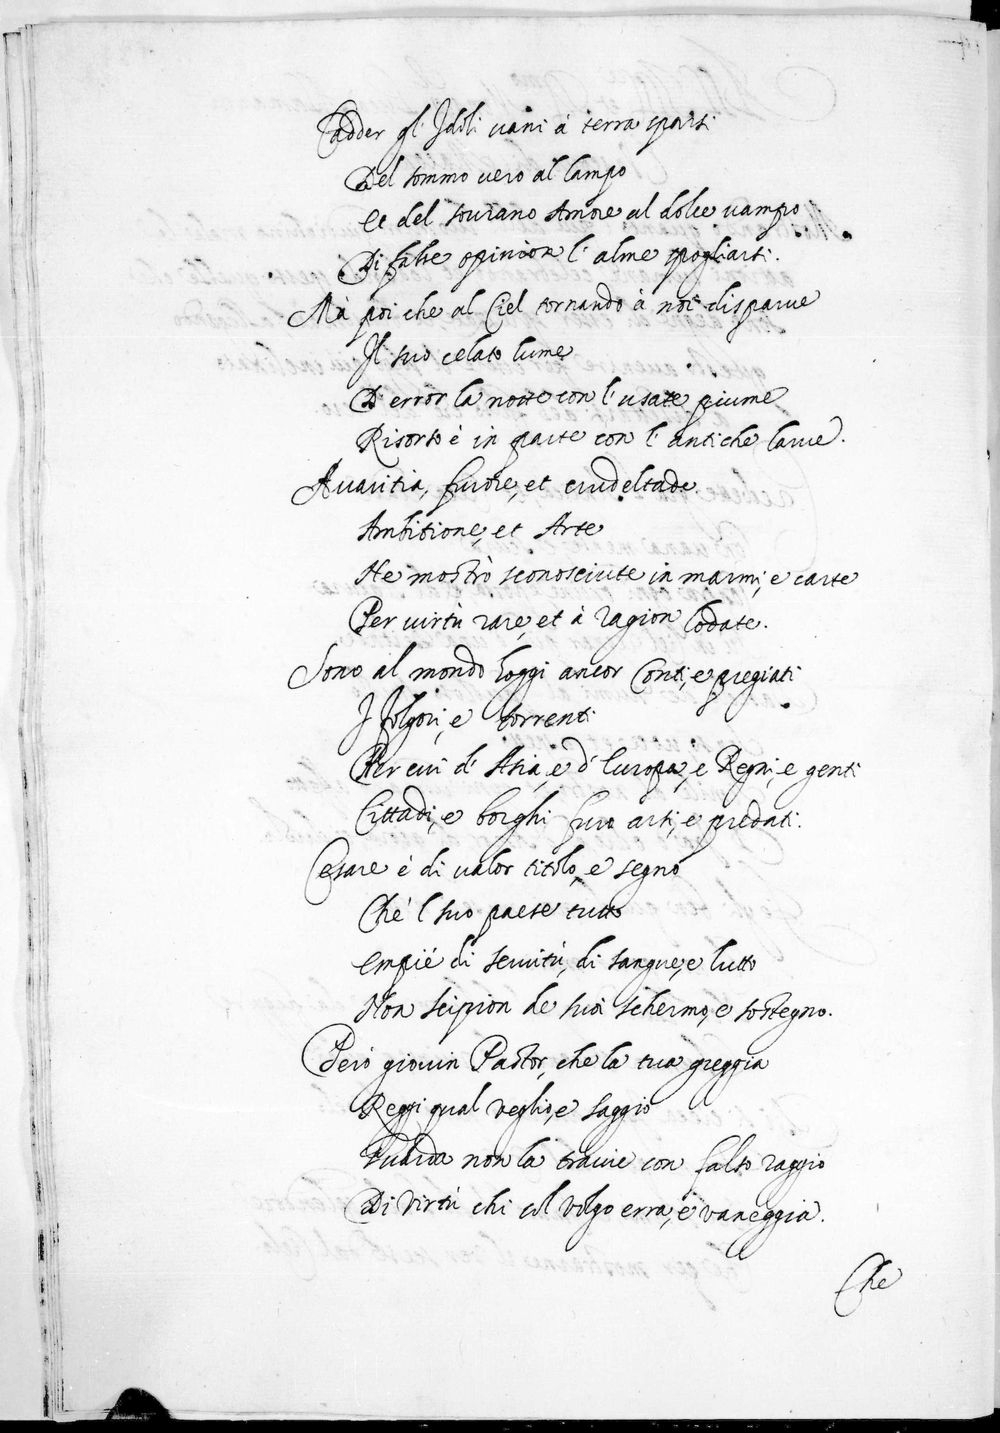 Cadder gl'Idoli vani à terra sparti
Del sommo vero al lampo
Et del sourano Amore al dolce vampo
Di false opinion l'alme spogliarti.
Mà poi che al Ciel tornando à noi disparue
Il suo celato lume
D'error la notte con l'usate piume
Risorto è in parte con l'antiche larue.
Auaritia, furore, et crudeltade
Ambitione, et Arte
Ne mostrò sconosciute in marmi, e carte
Per uirtù rare, et à ragion lodate.
Sono al mondo hoggi ancor conti, e pregiati
I folgori, e torrenti
Per cui d'Asia, e d'Europa, e Regni, e genti
Cittadi, e borghi furo arsi, e predati.
Cesare è di valor titolo, e segno
Che'l suo paese tutto
empié di seruitù, di sangue, e lutto
Non scipion de suoi schermo, e sostegno.
Però giouin Pastor, che la tua greggia
Reggi qual veglio, e saggio
Guarda non la trauie con falso raggio
Di Virtù chi col volgo erra, e vaneggia.
Che